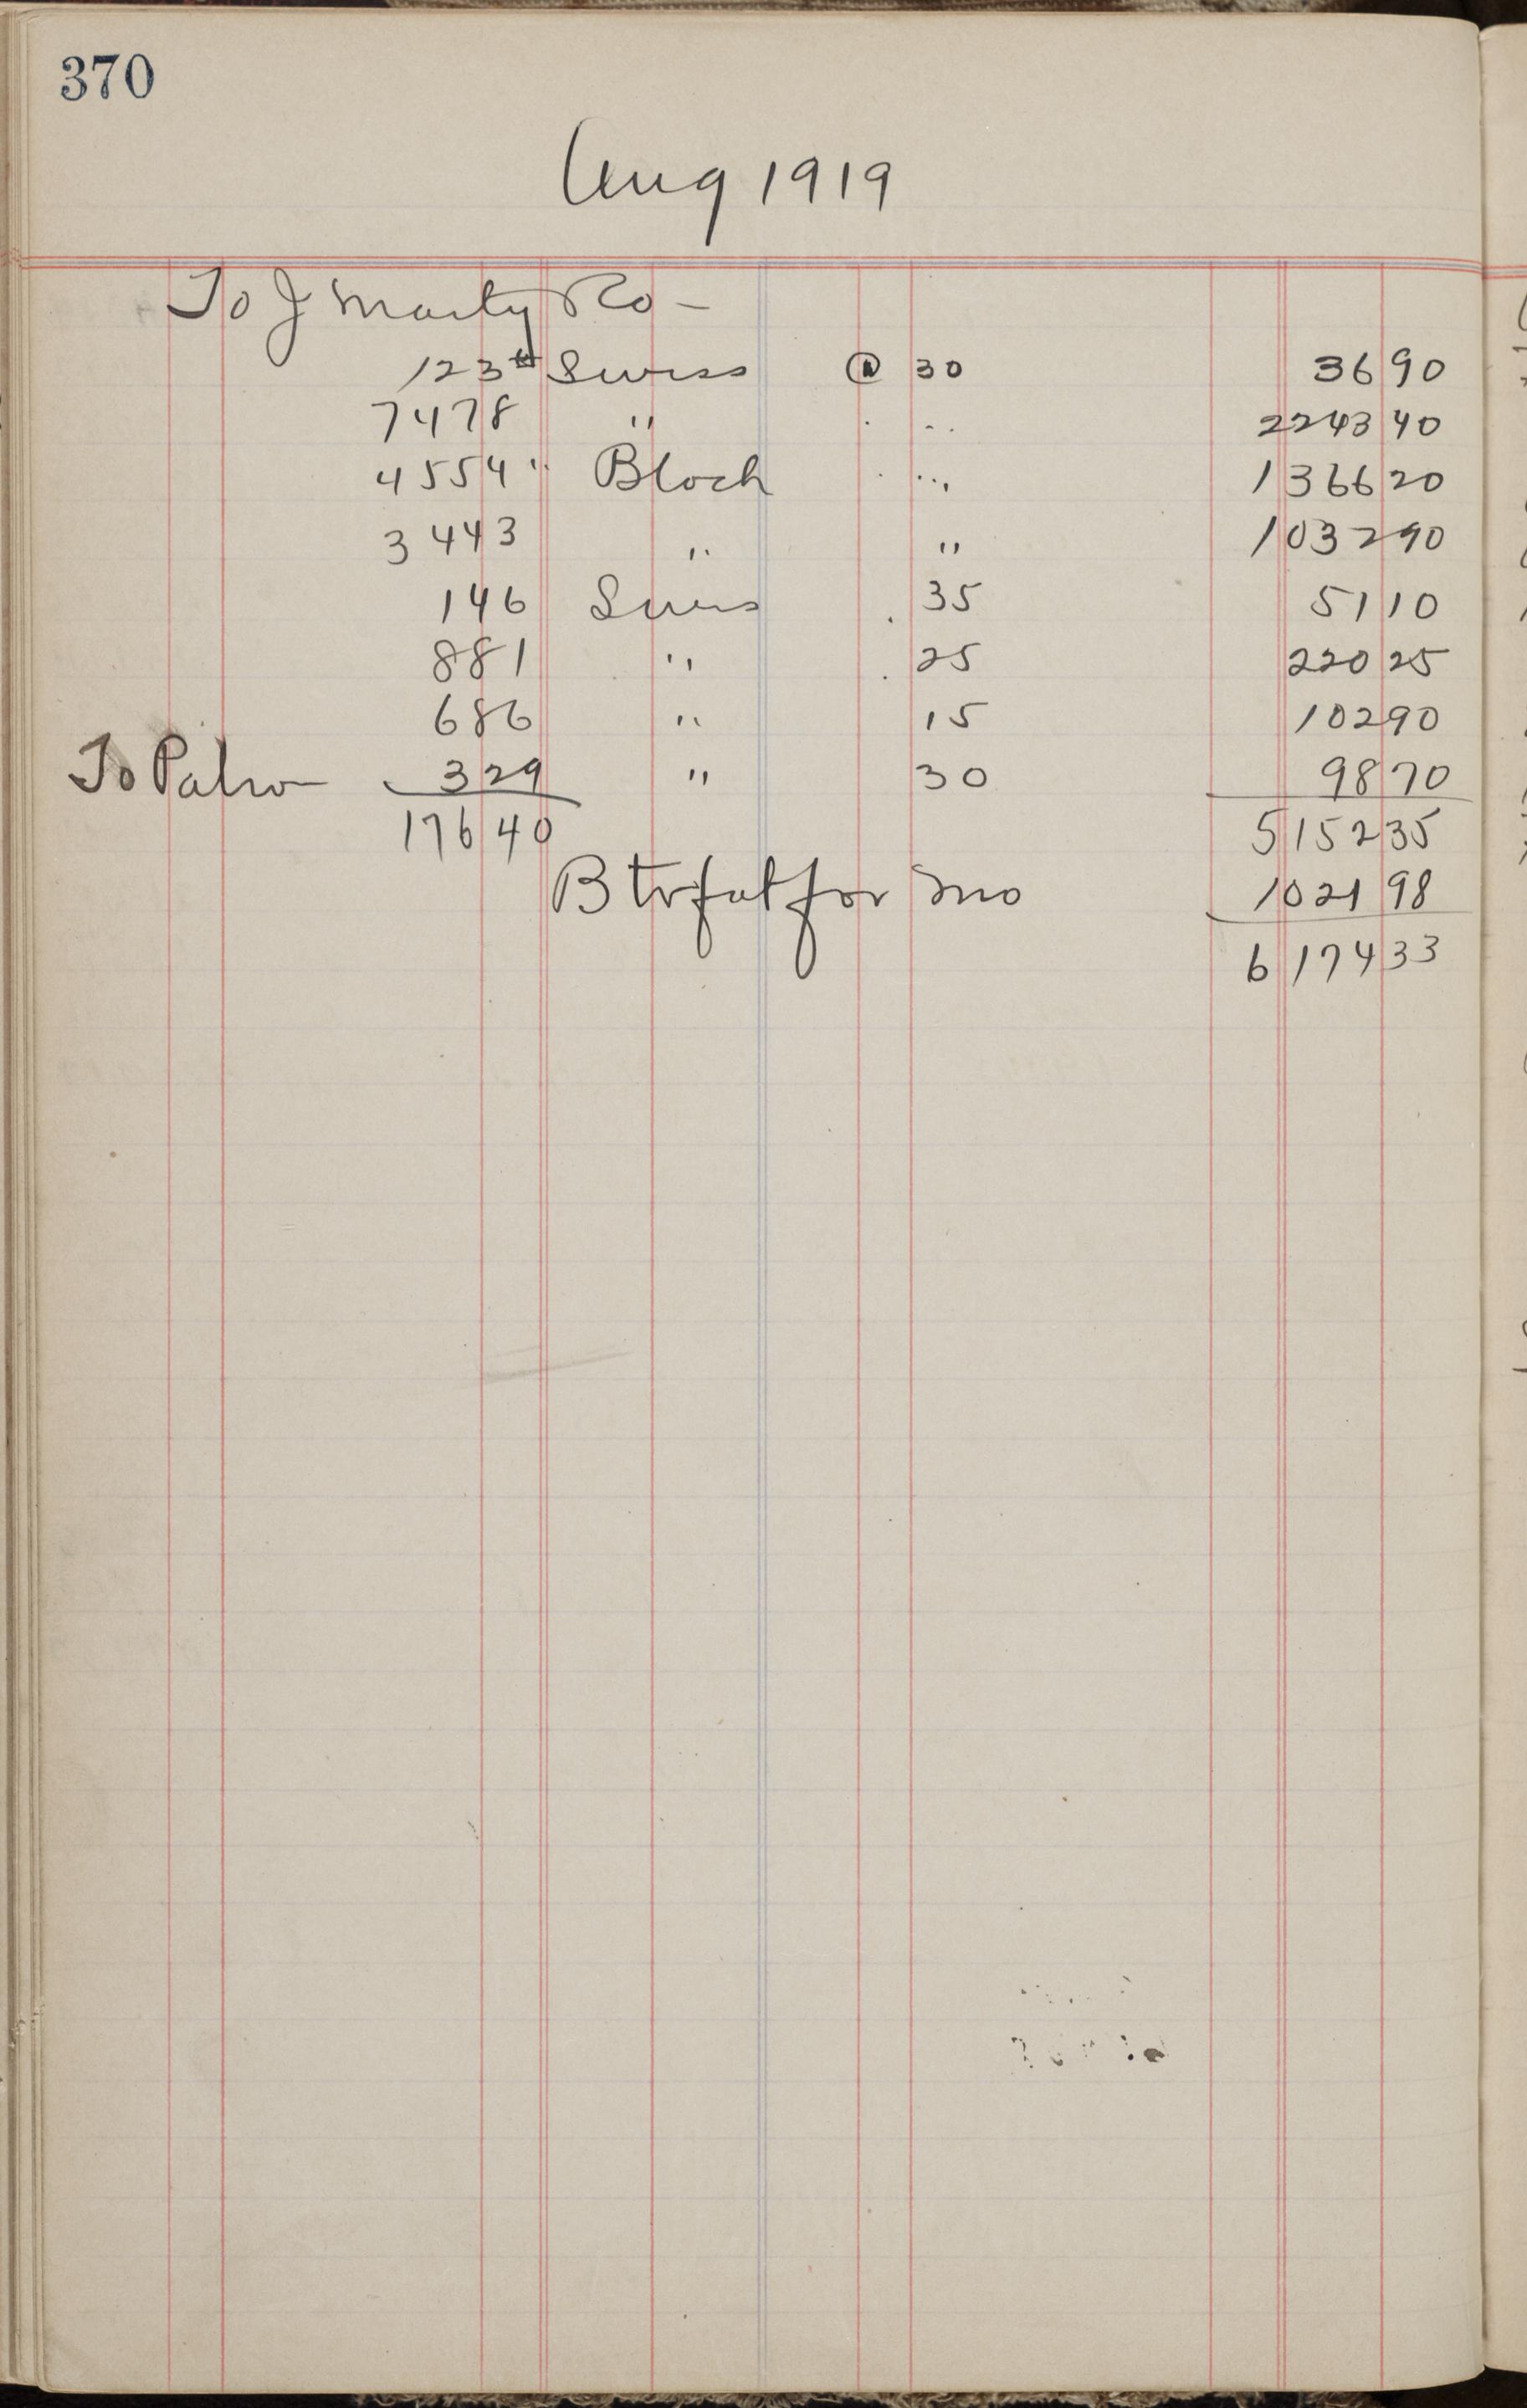 370
Aug 1919
To J Marty Co —
123# Swiss @ 30 36 90
7478 " . " 2243 40
4554 " Block . " 1366 20
3443 " " 1032 90
146 Swiss . 35 51 10
881 " . 25 220 25
686 " 15 102 90
To Patro 329 " 30 98 70
17640 5152 35
Btrfat for mo 1021 98
6174 33